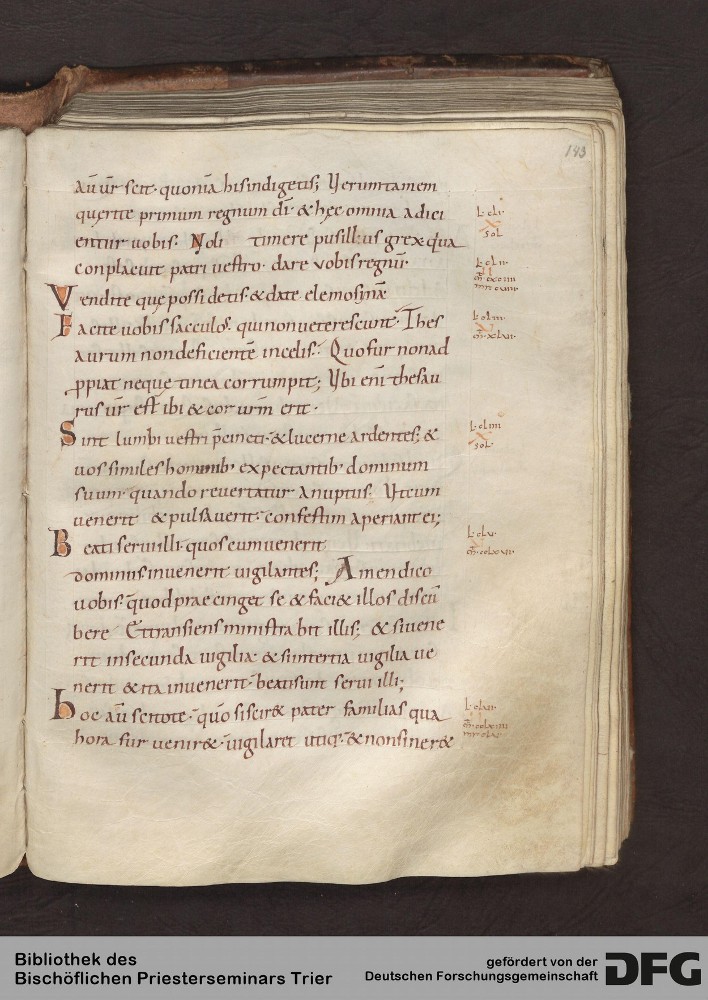 143
aū ur̄ scit· quoniā his indigetis; Verumtamen
quęrite primum regnum dī· & hęc omnia adici
entur uobis· Noli timere pusillus grex q̄a
conplacuit patri uestro· dare vobis regnū·
Vendite quę possidetis· & date elemosynā
Facite uobis sacculos· qui non ueterescunt· Thes
aurum non deficientē in celis· Quo fur non ad
p̱piat neque tinea corrumpit; Vbi enī thesau
rus ur̄ est ibi & cor urm̄ erit·
Sint lumbi uestri p̄cincti· & lucerne ardentes; &
uos similes hominib· expectantib· dominum
suum· quando revertatur a nuptiis· Vt cum
uenerit & pulsaverit· confestim aperiant ei;
Beati serui illi· quos cum venerit
dominus invenerit uigilantes; Amen dico
uobis· q̄uod prae cinget se & faci& illos discū
bere Et transiens ministrabit illis; & si vene
rit in secunda uigilia· & si in tertia vigilia ue
nerit & ita invenerit· beati sunt servi illi;
hoc aū scitote· q̄uō si scir& pater familias qua
hora fur venir& · vigilaret utiq;· & non siner&
Bibliothek des
Bischöflichen Priesterseminars Trier
gefördert von der
Deutschen Forschungsgemeinschaft
DFG